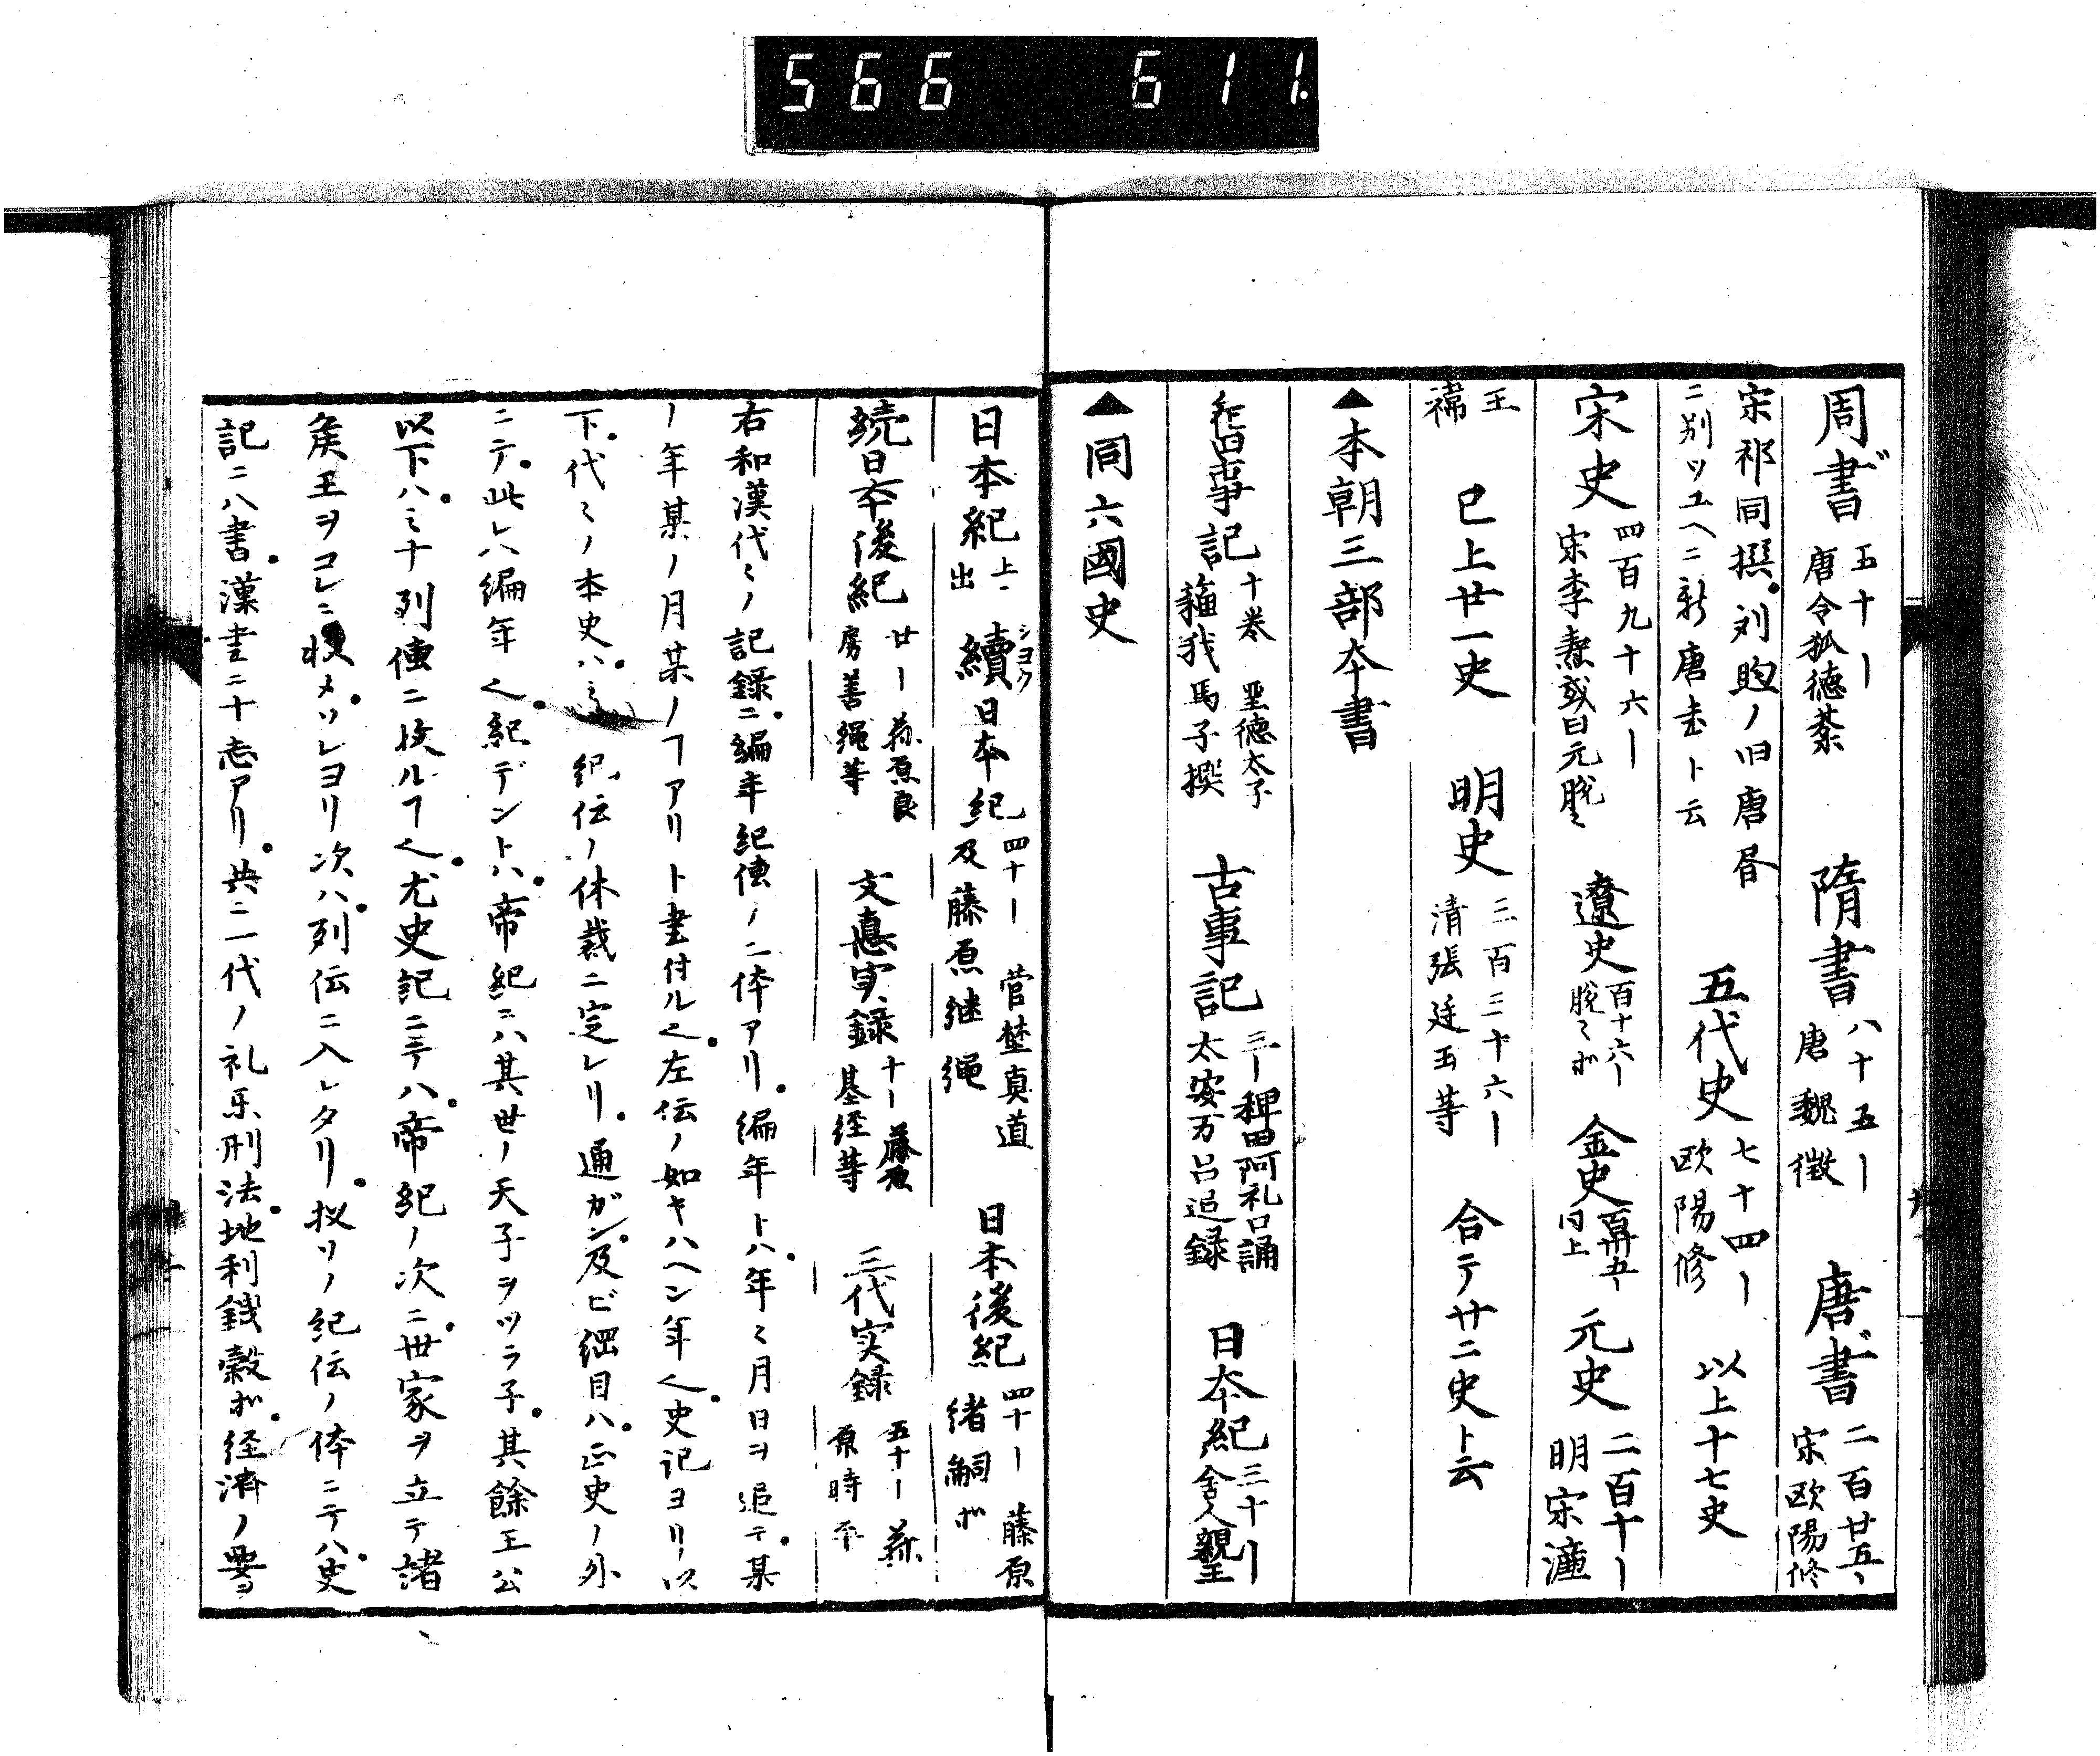 566 611.
周書 五十｜ 唐令狐徳棻 隋書 八十五｜ 唐魏徴 唐書 二百廿五、 宋欧陽修
宋祁同撰。刘昫ノ旧唐書
ニ別ツユヘニ新唐書ト云 五代史 七十四｜ 欧陽修 以上十七史
宋史 四百九十六｜ 宋李燾或曰元脱〻 遼史 百十六｜ 脱〻ホ 金史 百卅五、 同上 元史 二百十｜ 明宋濂
王禕 已上廿一史 明史 三百三十六｜ 清張廷玉等 合テ廿二史ト云
▲本朝三部本書
旧事記 十巻 聖徳太子 蘓我馬子撰 古事記 三｜ 稗田阿礼口誦 太安万呂追録 日本紀 三十｜ 舎人親王
▲同六國史
日本紀 上ニ出 續日本紀 シヨク 四十｜ 菅埜真道 及藤原継縄 日本後紀 四十｜ 藤原緒嗣ホ
続日本後紀 廿｜ 䓤原良房善縄等 文徳実録 十｜ 藤原基経等 三代実録 五十｜ 䓤原時平
右和漢代〻ノ記録ニ。編年紀傳ノ二体アリ。編年トハ。年〻月日ヲ追テ。某
ノ年某ノ月某ノヿアリト書付ル也。左伝ノ如キハヘン年也。史記ヨリ以
下。代〻ノ本史ハ。ミ 紀伝ノ体裁ニ定レリ。通ガン。及ビ綱目ハ。正史ノ外
ニテ。此レハ編年也。紀デントハ。帝紀ニハ其世ノ天子ヲツラ子。其餘王公
以下ハ。ミナ列傳ニ收ルヿ也。尤史記ニテハ。帝紀ノ次ニ。世家ヲ立テ諸
矦王ヲコレニ收メ。ソレヨリ次ハ。列伝ニ入レタリ。扨ソノ紀伝ノ体ニテハ。史
記ニハ書。漢書ニ十志アリ。共ニ一代ノ礼乐刑法。地利錢穀ホ。経済ノ要ヲ